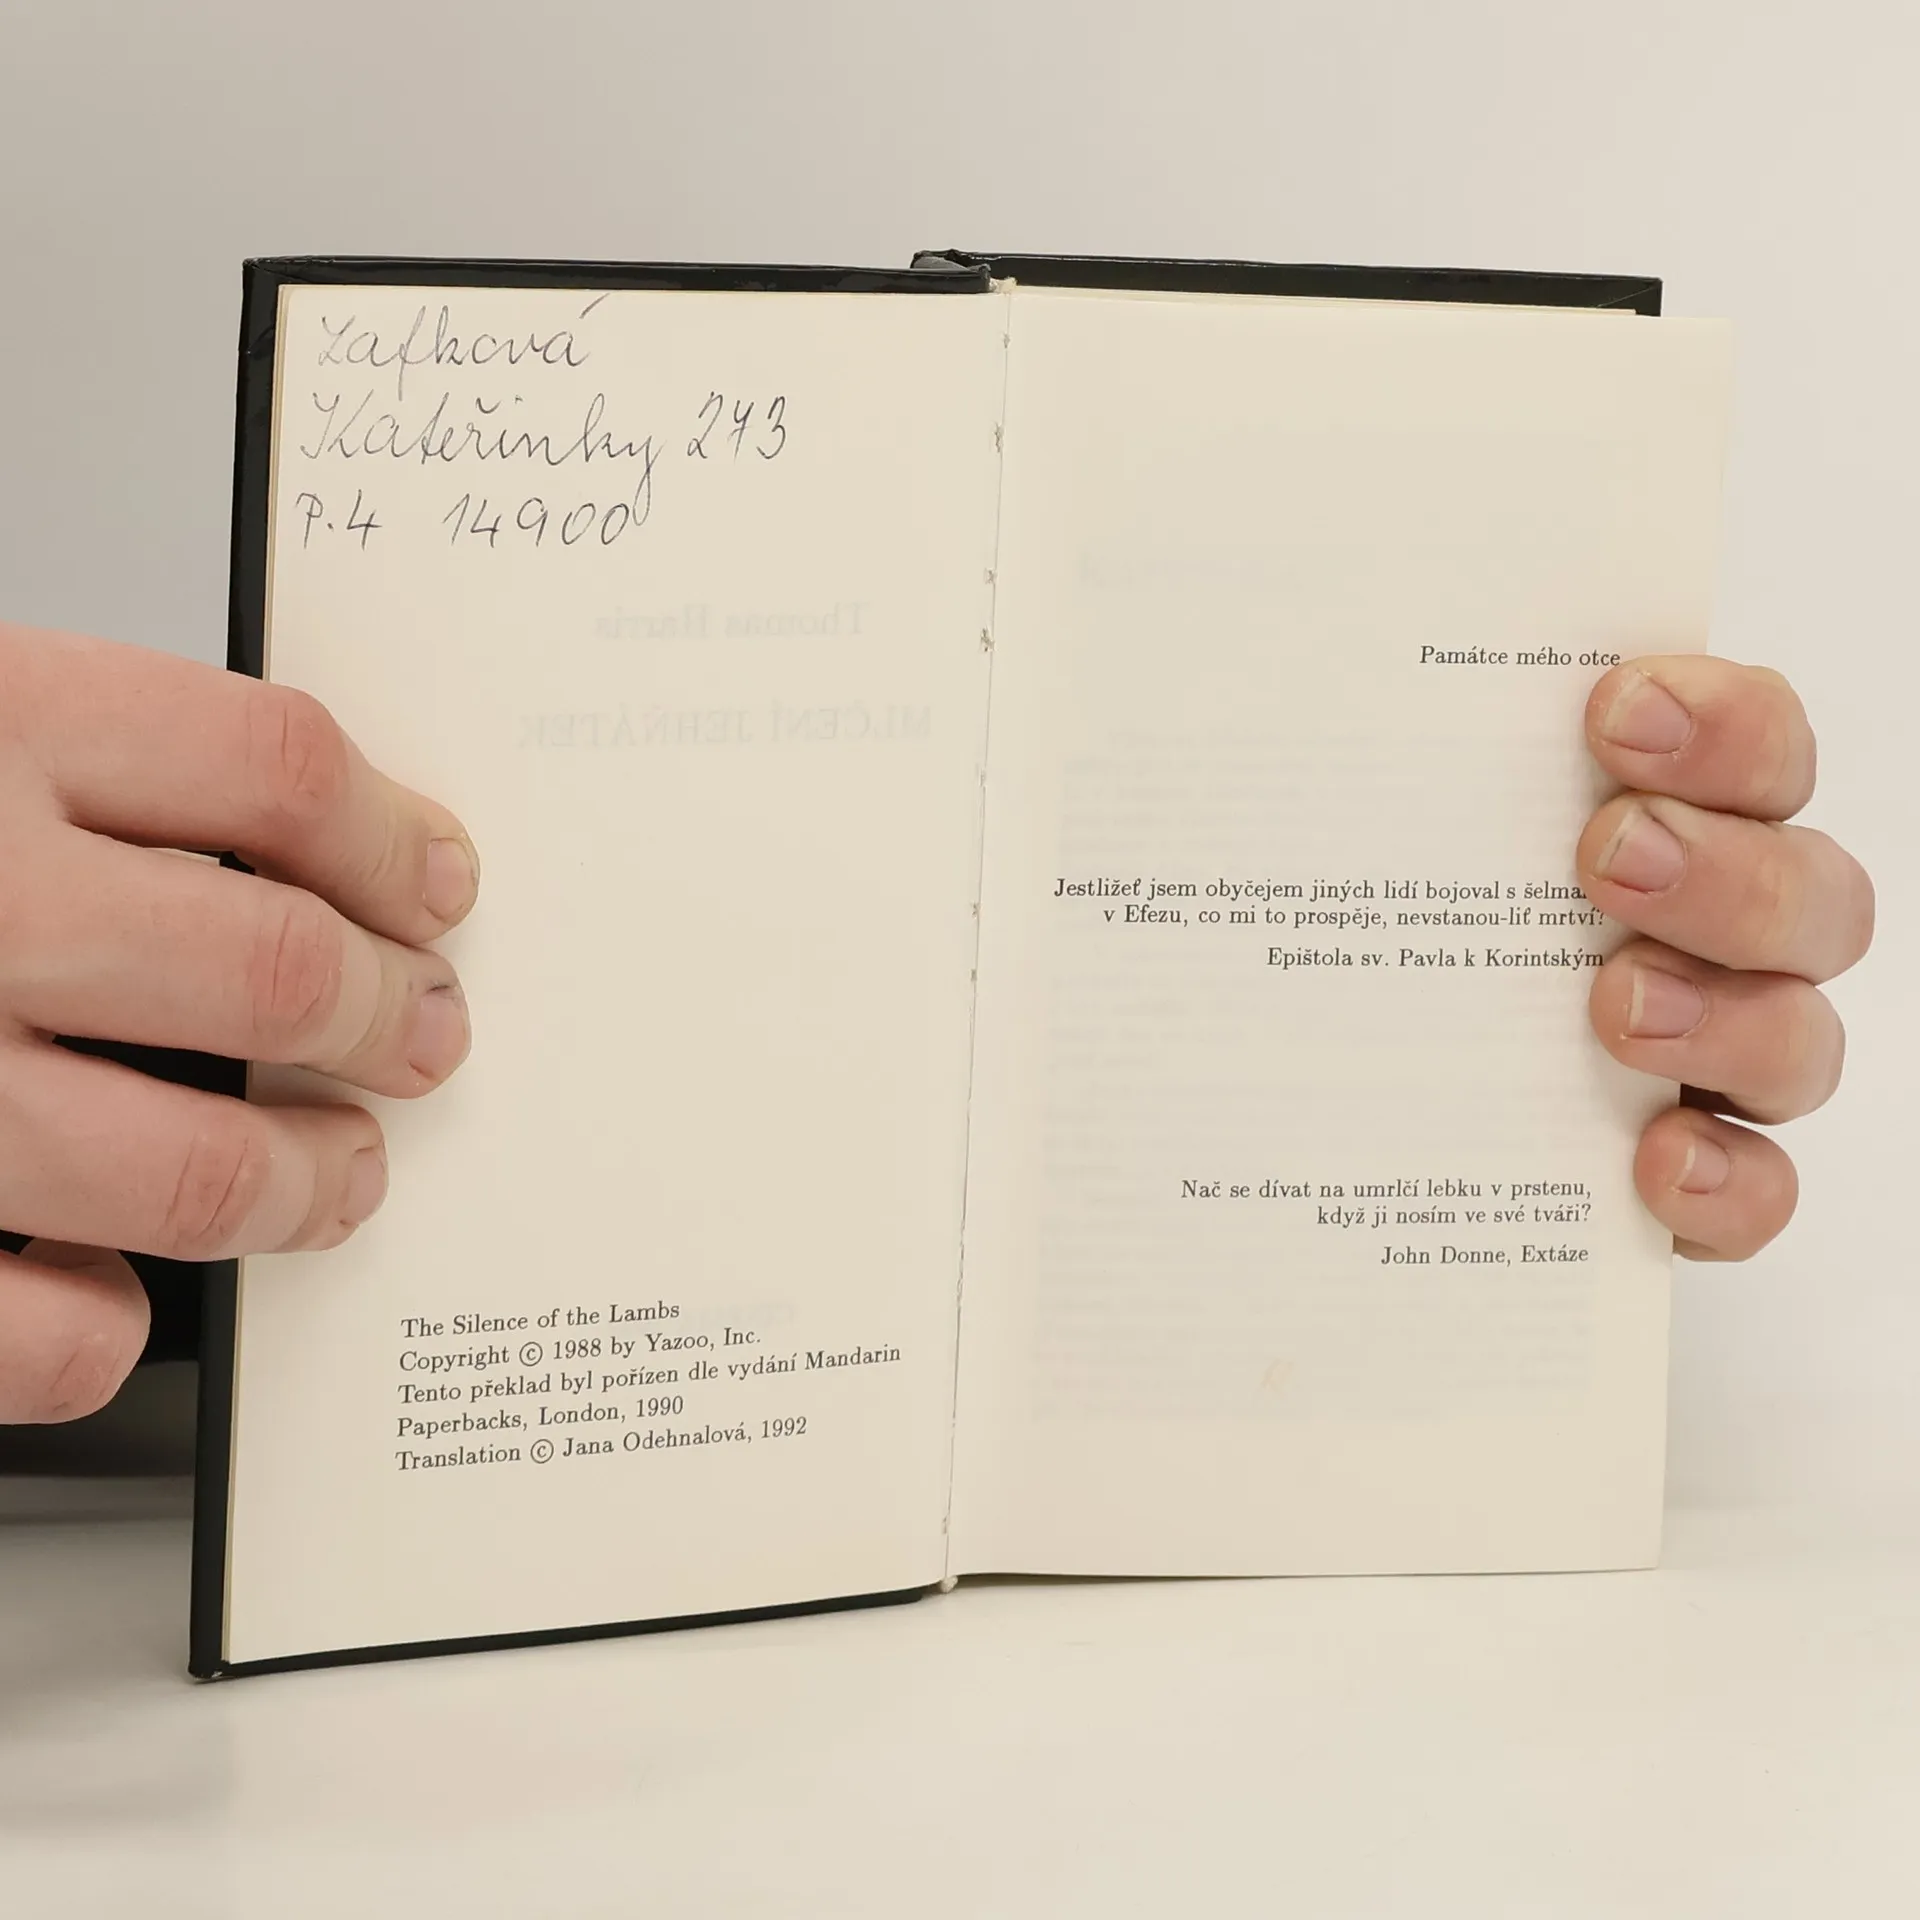 Zafková
Kateřinky 273
P.4 14900
Thomas Harris
MLČENÍ JEHŇÁTEK
The Silence of the Lambs
Copyright © 1988 by Yazoo, Inc.
Tento překlad byl pořízen dle vydání Mandarin
Paperbacks, London, 1990
Translation © Jana Odehnalová, 1992
Památce mého otce
Jestližeť jsem obyčejem jiných lidí bojoval s
v Efezu, co mi to prospěje, nevstanou-liť mrtví?
Epištola sv. Pavla k Korintským
Nač se dívat na umrlčí lebku v prstenu,
když ji nosím ve své tváři?
John Donne, Extáze